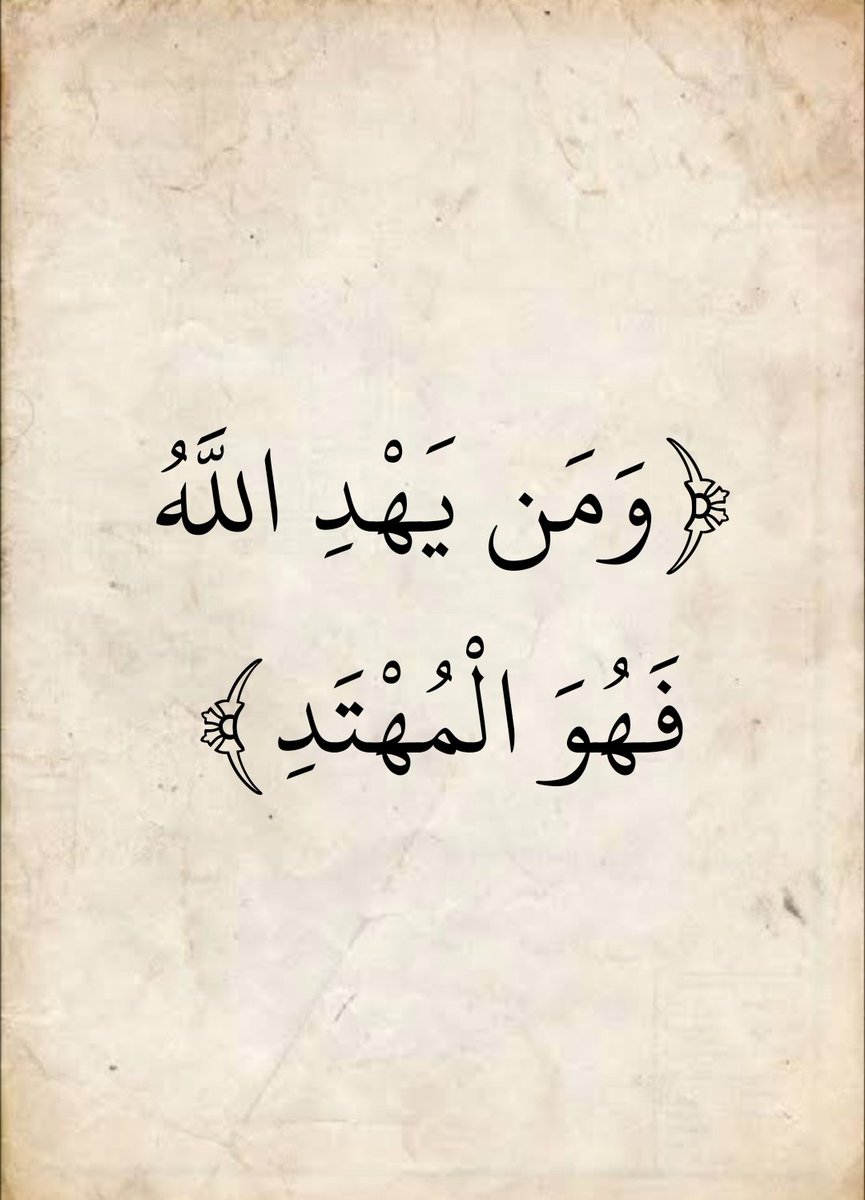 ﴿وَمَن يَهْدِ اللَّهُ
فَهُوَ الْمُهْتَدِ﴾